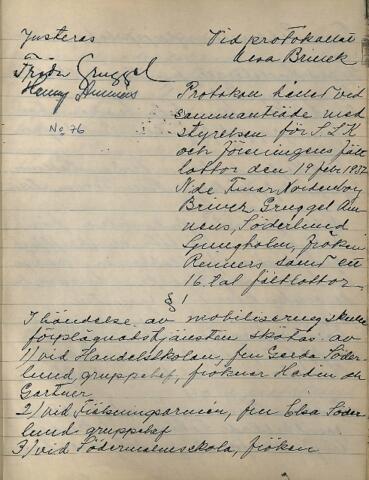 Justeras
Vid protokollet
Frida Gruggel
Berta Brinck
Henny
No 76
Protokoll hållet vid
sammanträde med
styrelsen för S.L.K
och föreningens fält
lottor den 19 febr. 1932
N.de Fruar, Nordenborg
Briver, Gruggel
Söderlund
Ljungholm, fröken
Renners samt ett
16.tal fältlottor
§1
I händelse av mobilisering skulle
förplägnadstjänsten skötas av
1/ vid Handelsskolan, fru Gerda Söder-
lund, gruppchef, fröknar Hadin och
Gartner
2/ vid Frälsningsarmén, fru Elsa Söder
lund gruppchef
3/ vid Södermalmsskola, fröken